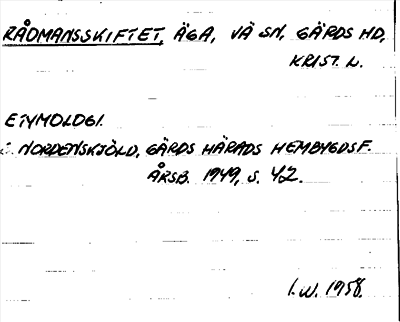 RÅDMANSSKIFTET, ÄGA, VÄ SN, GÄRDS HD,
KRIST. L.
ETYMOLOGI.
NORDENSKJÖLD, GÄRDS HÄRADS HEMBYGDSF.
ÅRSB. 1949, S. 42.
I.W. 1958.